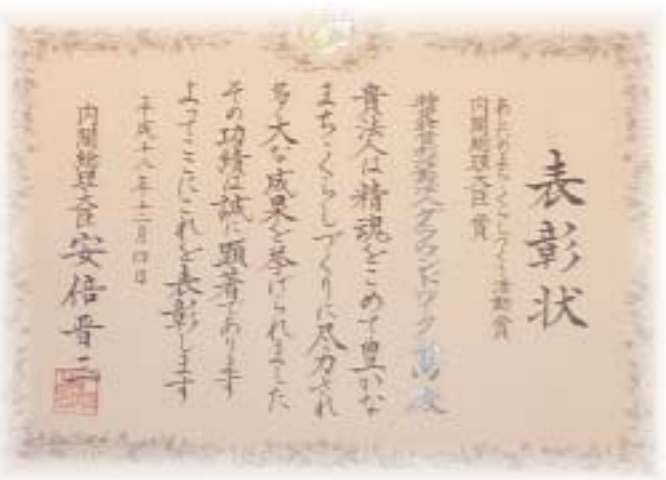 表彰状
あしたのまち・くらしづくり活動賞
内閣総理大臣賞
特定非営利活動法人グラウンドワーク三島
貴法人は精魂をこめて豊かな
まち・くらしづくりに尽力され
多大な成果を挙げられました
その功績は誠に顕著であります
よってここにこれを表彰します
平成十八年十一月四日
内閣総理大臣 安倍晋三